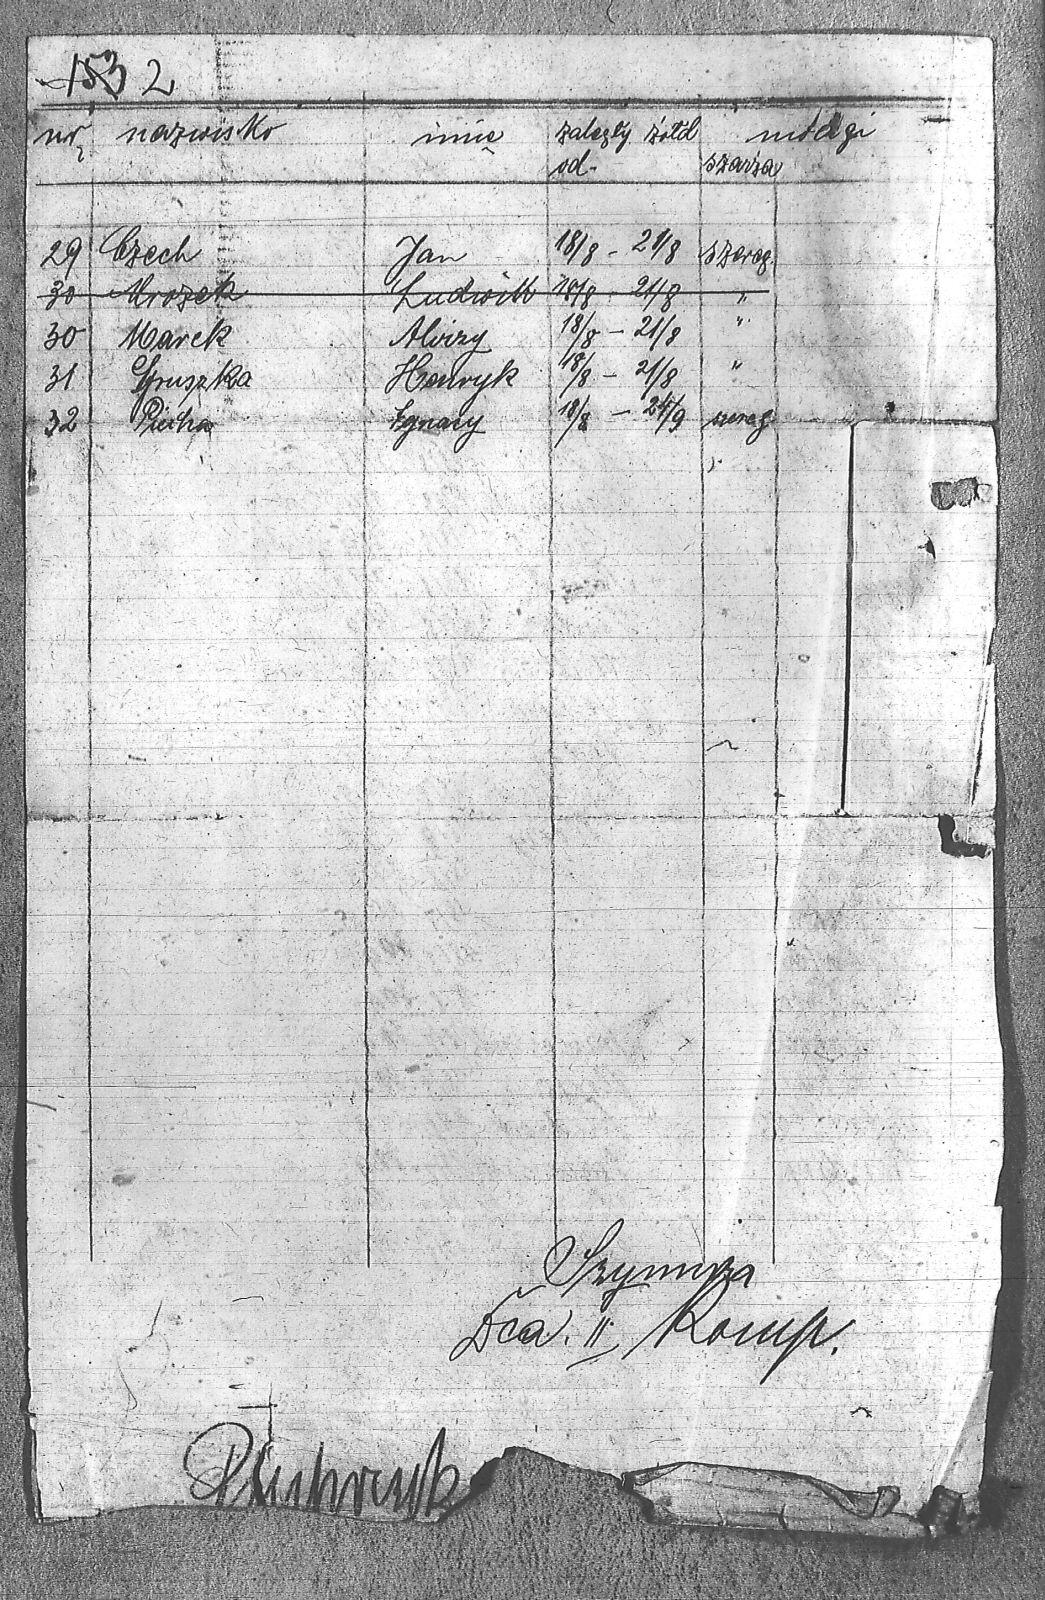 153 2
nr nazwisko imię zaległy żołd uwagi
od- szarża
29 Czech Jan 18/8 - 21/8 szereg.
30 Mrozek Ludwik 18/8 - 21/8 "
30 Marek Alojzy 18/8 - 21/8 "
31 Gruszka Henryk 18/8 - 21/8 "
32 Piecha Ignacy 18/8 - 24/9 szereg.
Szymura
Dca. II Komp.